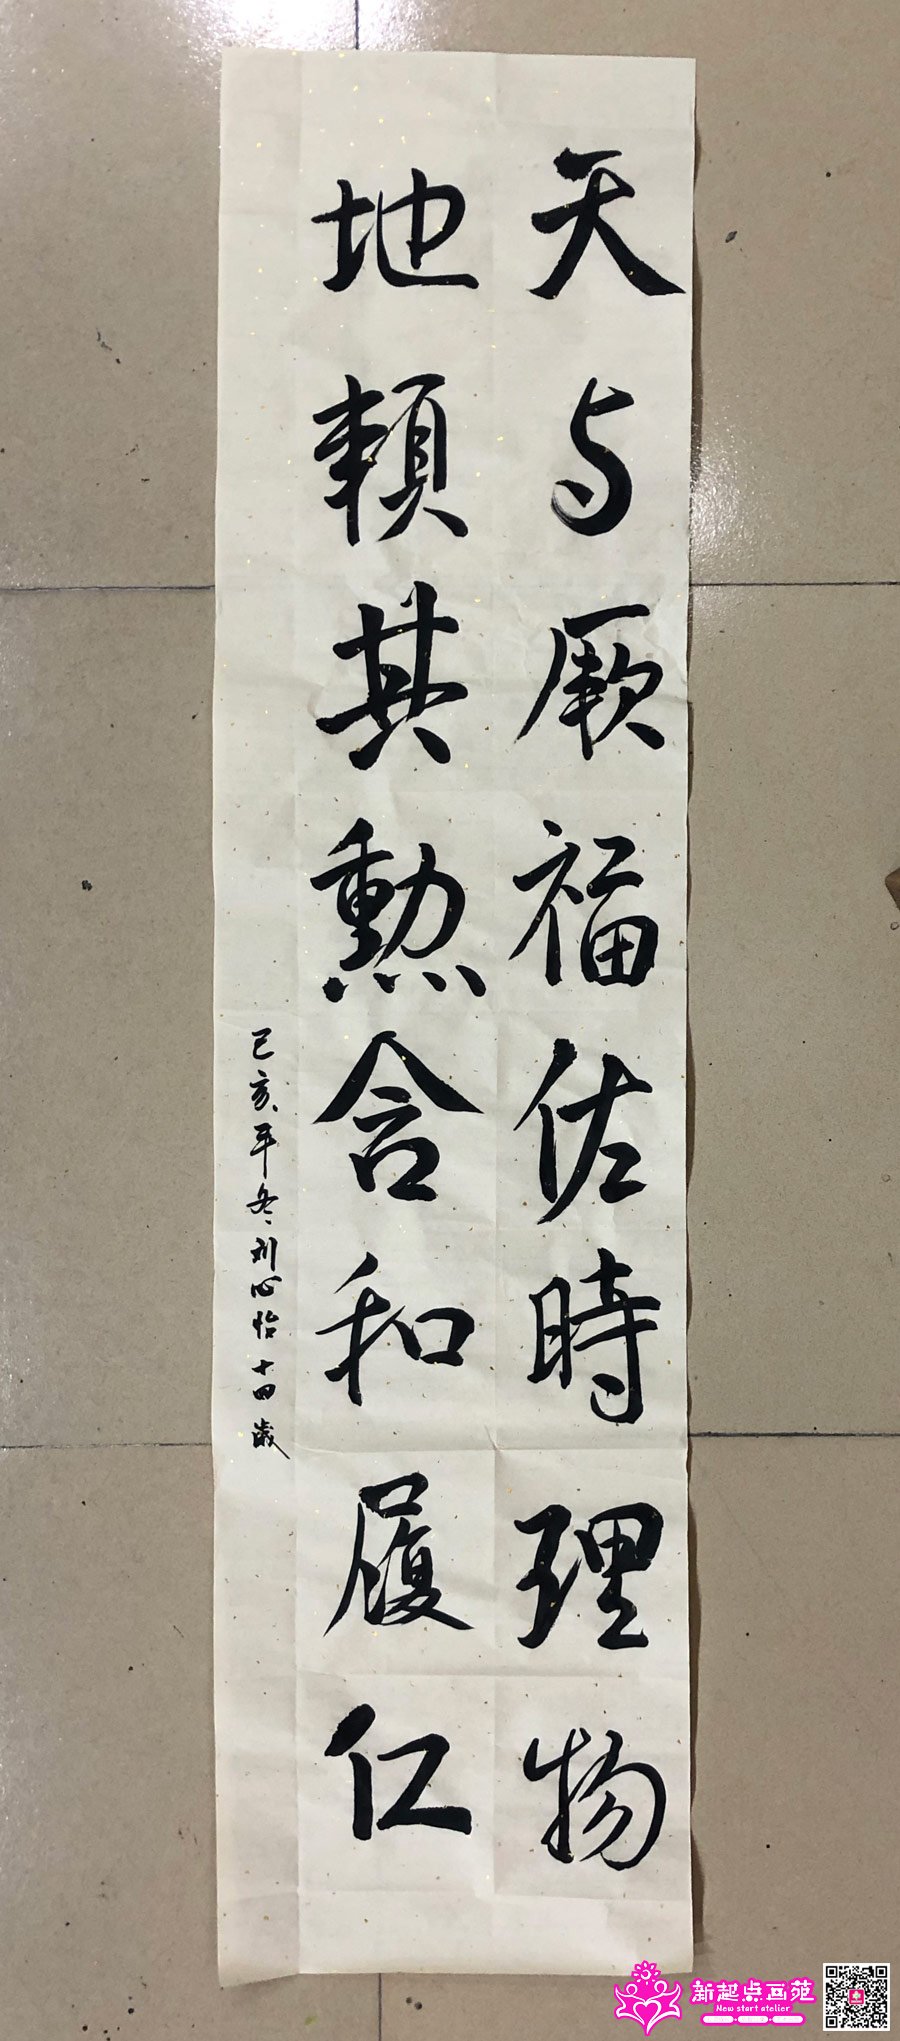 天与厥福佐時理物
地賴其勲含和履仁
己亥年冬刘心怡十四歳
新起点画苑
New start atelier